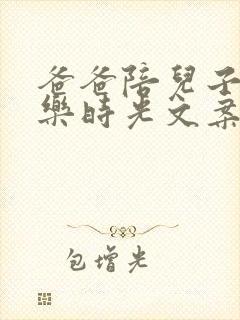 爸爸陪兒子
樂時光文案
包增光